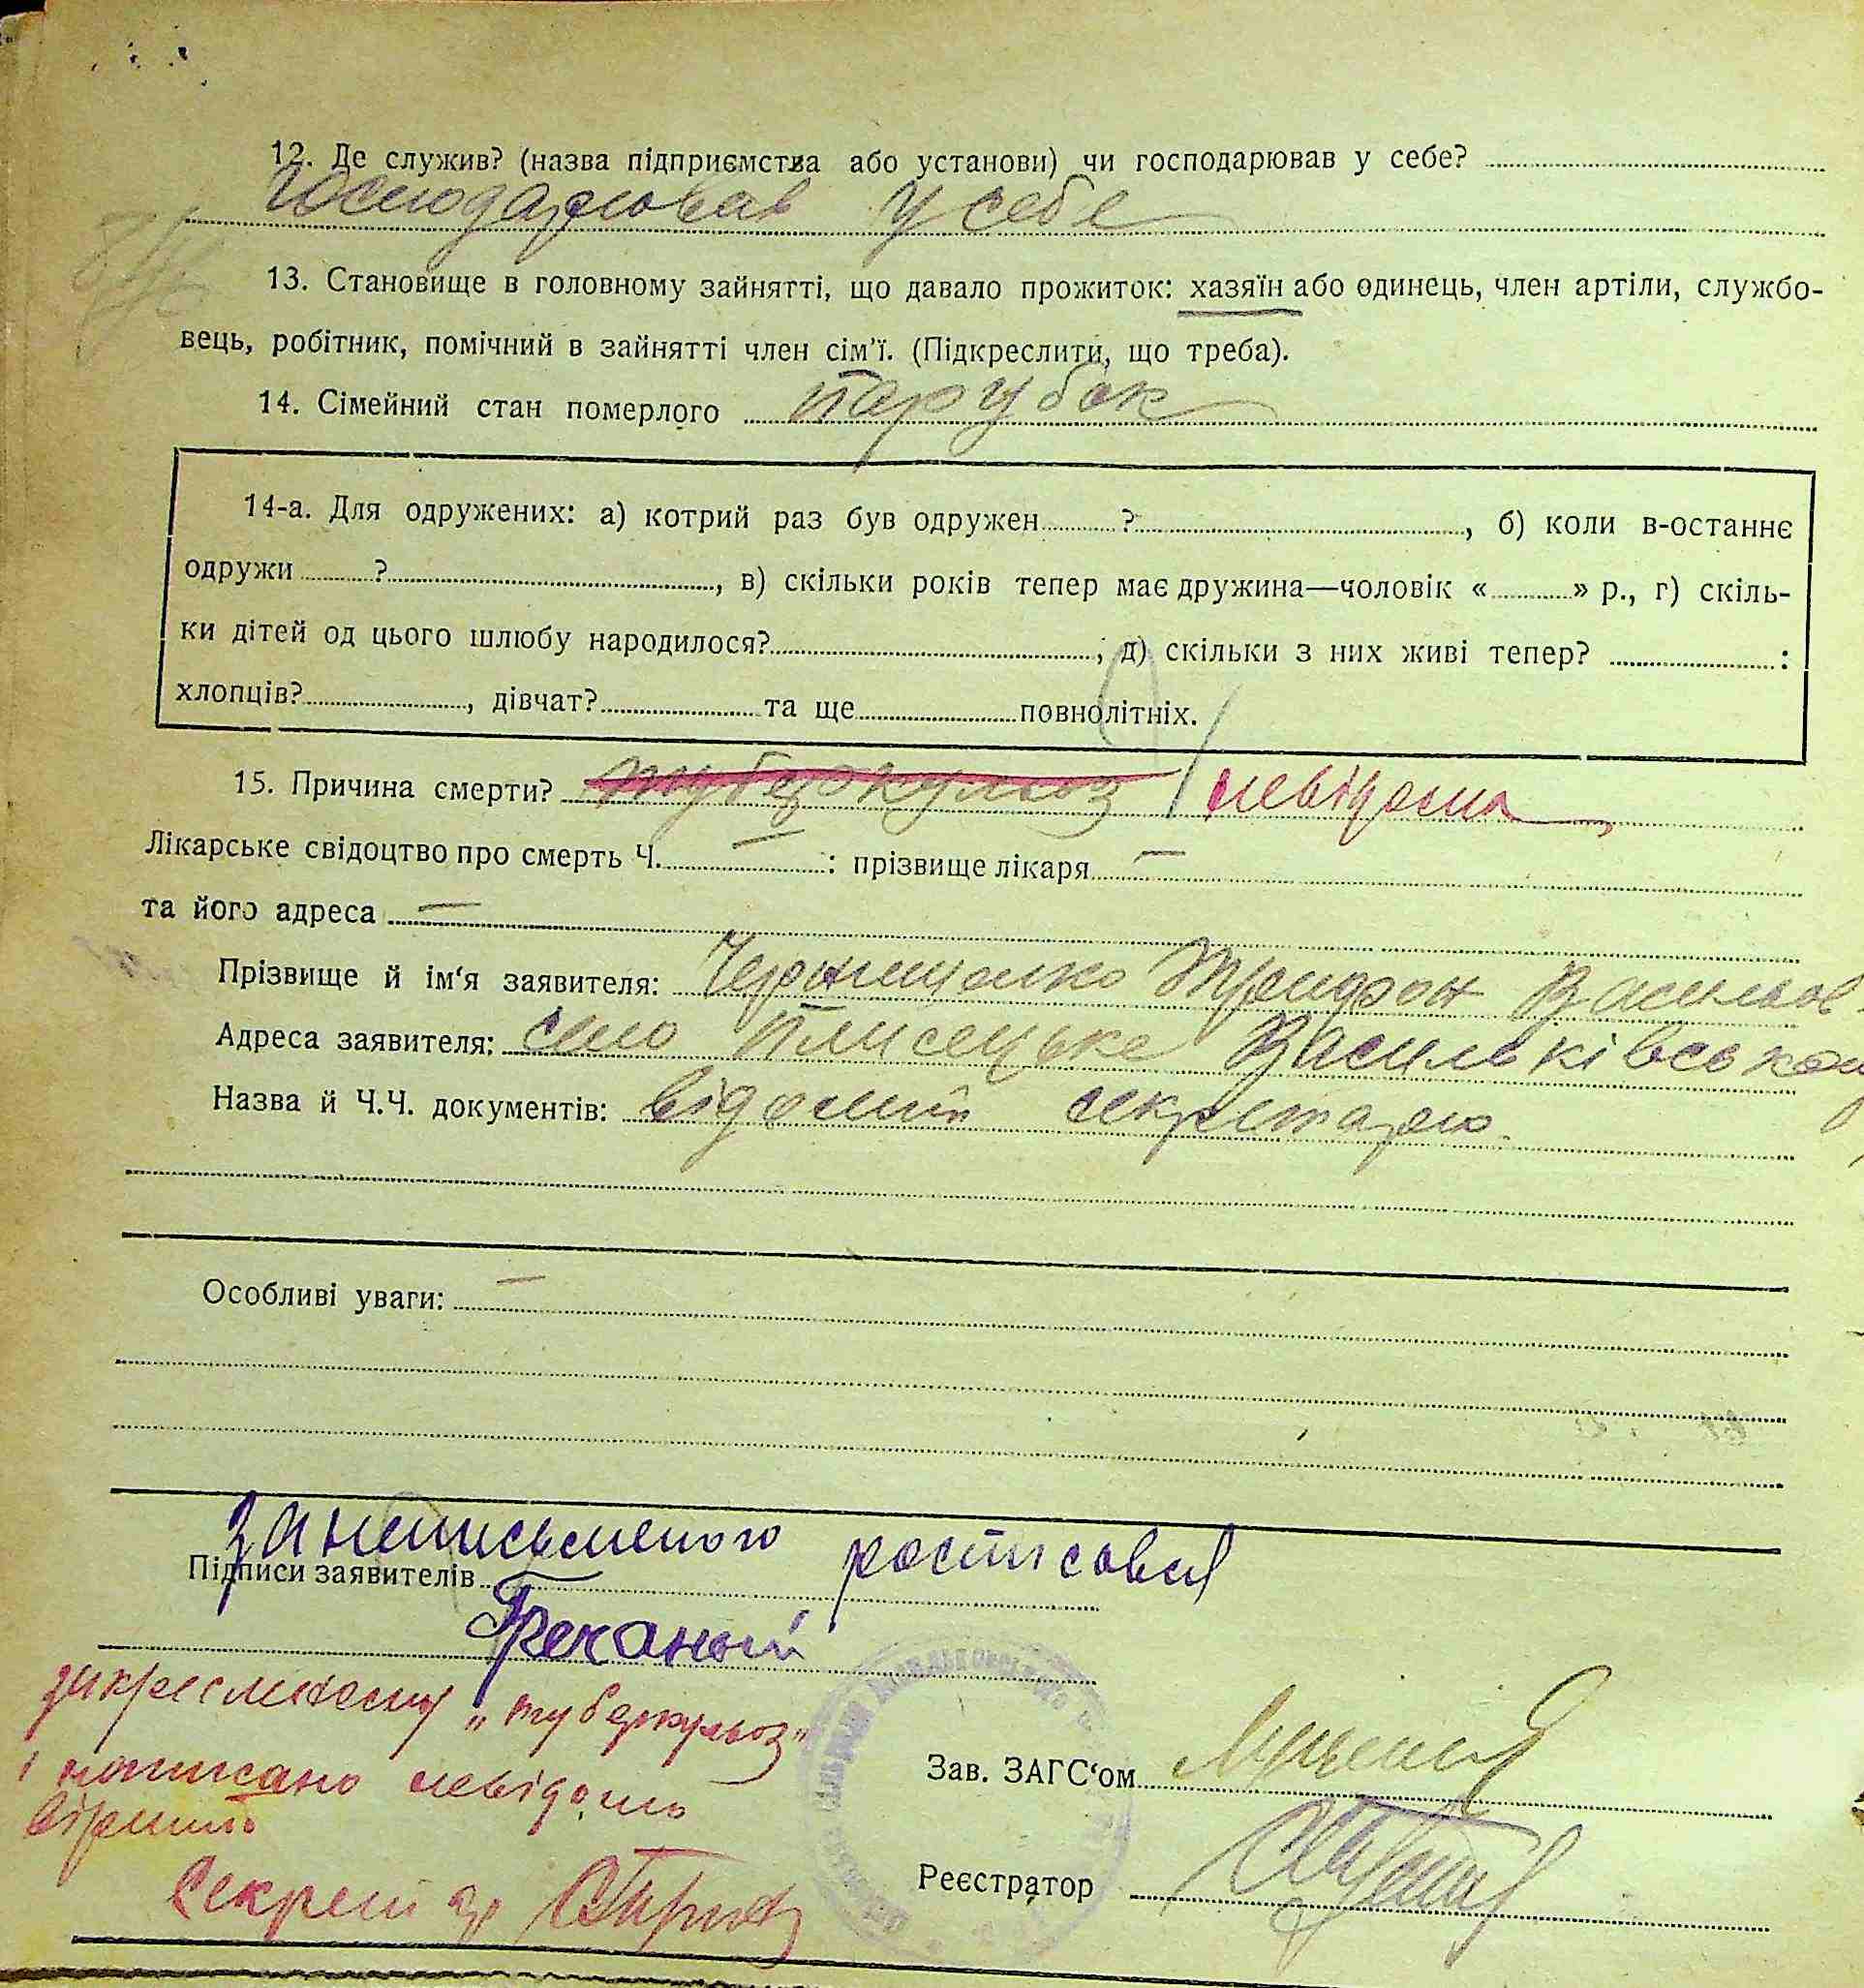 12. Де служив? (назва підприємства або установи) чи господарював у себе?
господарював у себе
13. Становище в головному зайнятті, що давало прожиток: хазяїн або одинець, член артіли, службо-
вець, робітник, помічний в зайнятті член сім'ї. (Підкреслити, що треба).
14. Сімейний стан померлого парубок
14-а. Для одружених: а) котрий раз був одружен ?, б) коли в-останнє
одружи ?, в) скільки років тепер має дружина—чоловік « » р., г) скіль-
ки дітей од цього шлюбу народилося? ; д) скільки з них живі тепер? :
хлопців? , дівчат? та ще повнолітніх.
15. Причина смерти? туберкульоз невідома
Лікарське свідоцтво про смерть Ч. — : прізвище лікаря —
та його адреса —
Прізвище й ім'я заявителя: Трифон Васильов
Адреса заявителя: село Плисецьке Васильківськ
Назва й Ч.Ч. документів: відомий секретарю
Особливі уваги: —
За неписьменого росписався
Підписи заявителів
Гречаный
закресленому „туберкульоз"
і написано невідомо
вірити
Зав. ЗАГС'ом
Секретар
Реєстратор